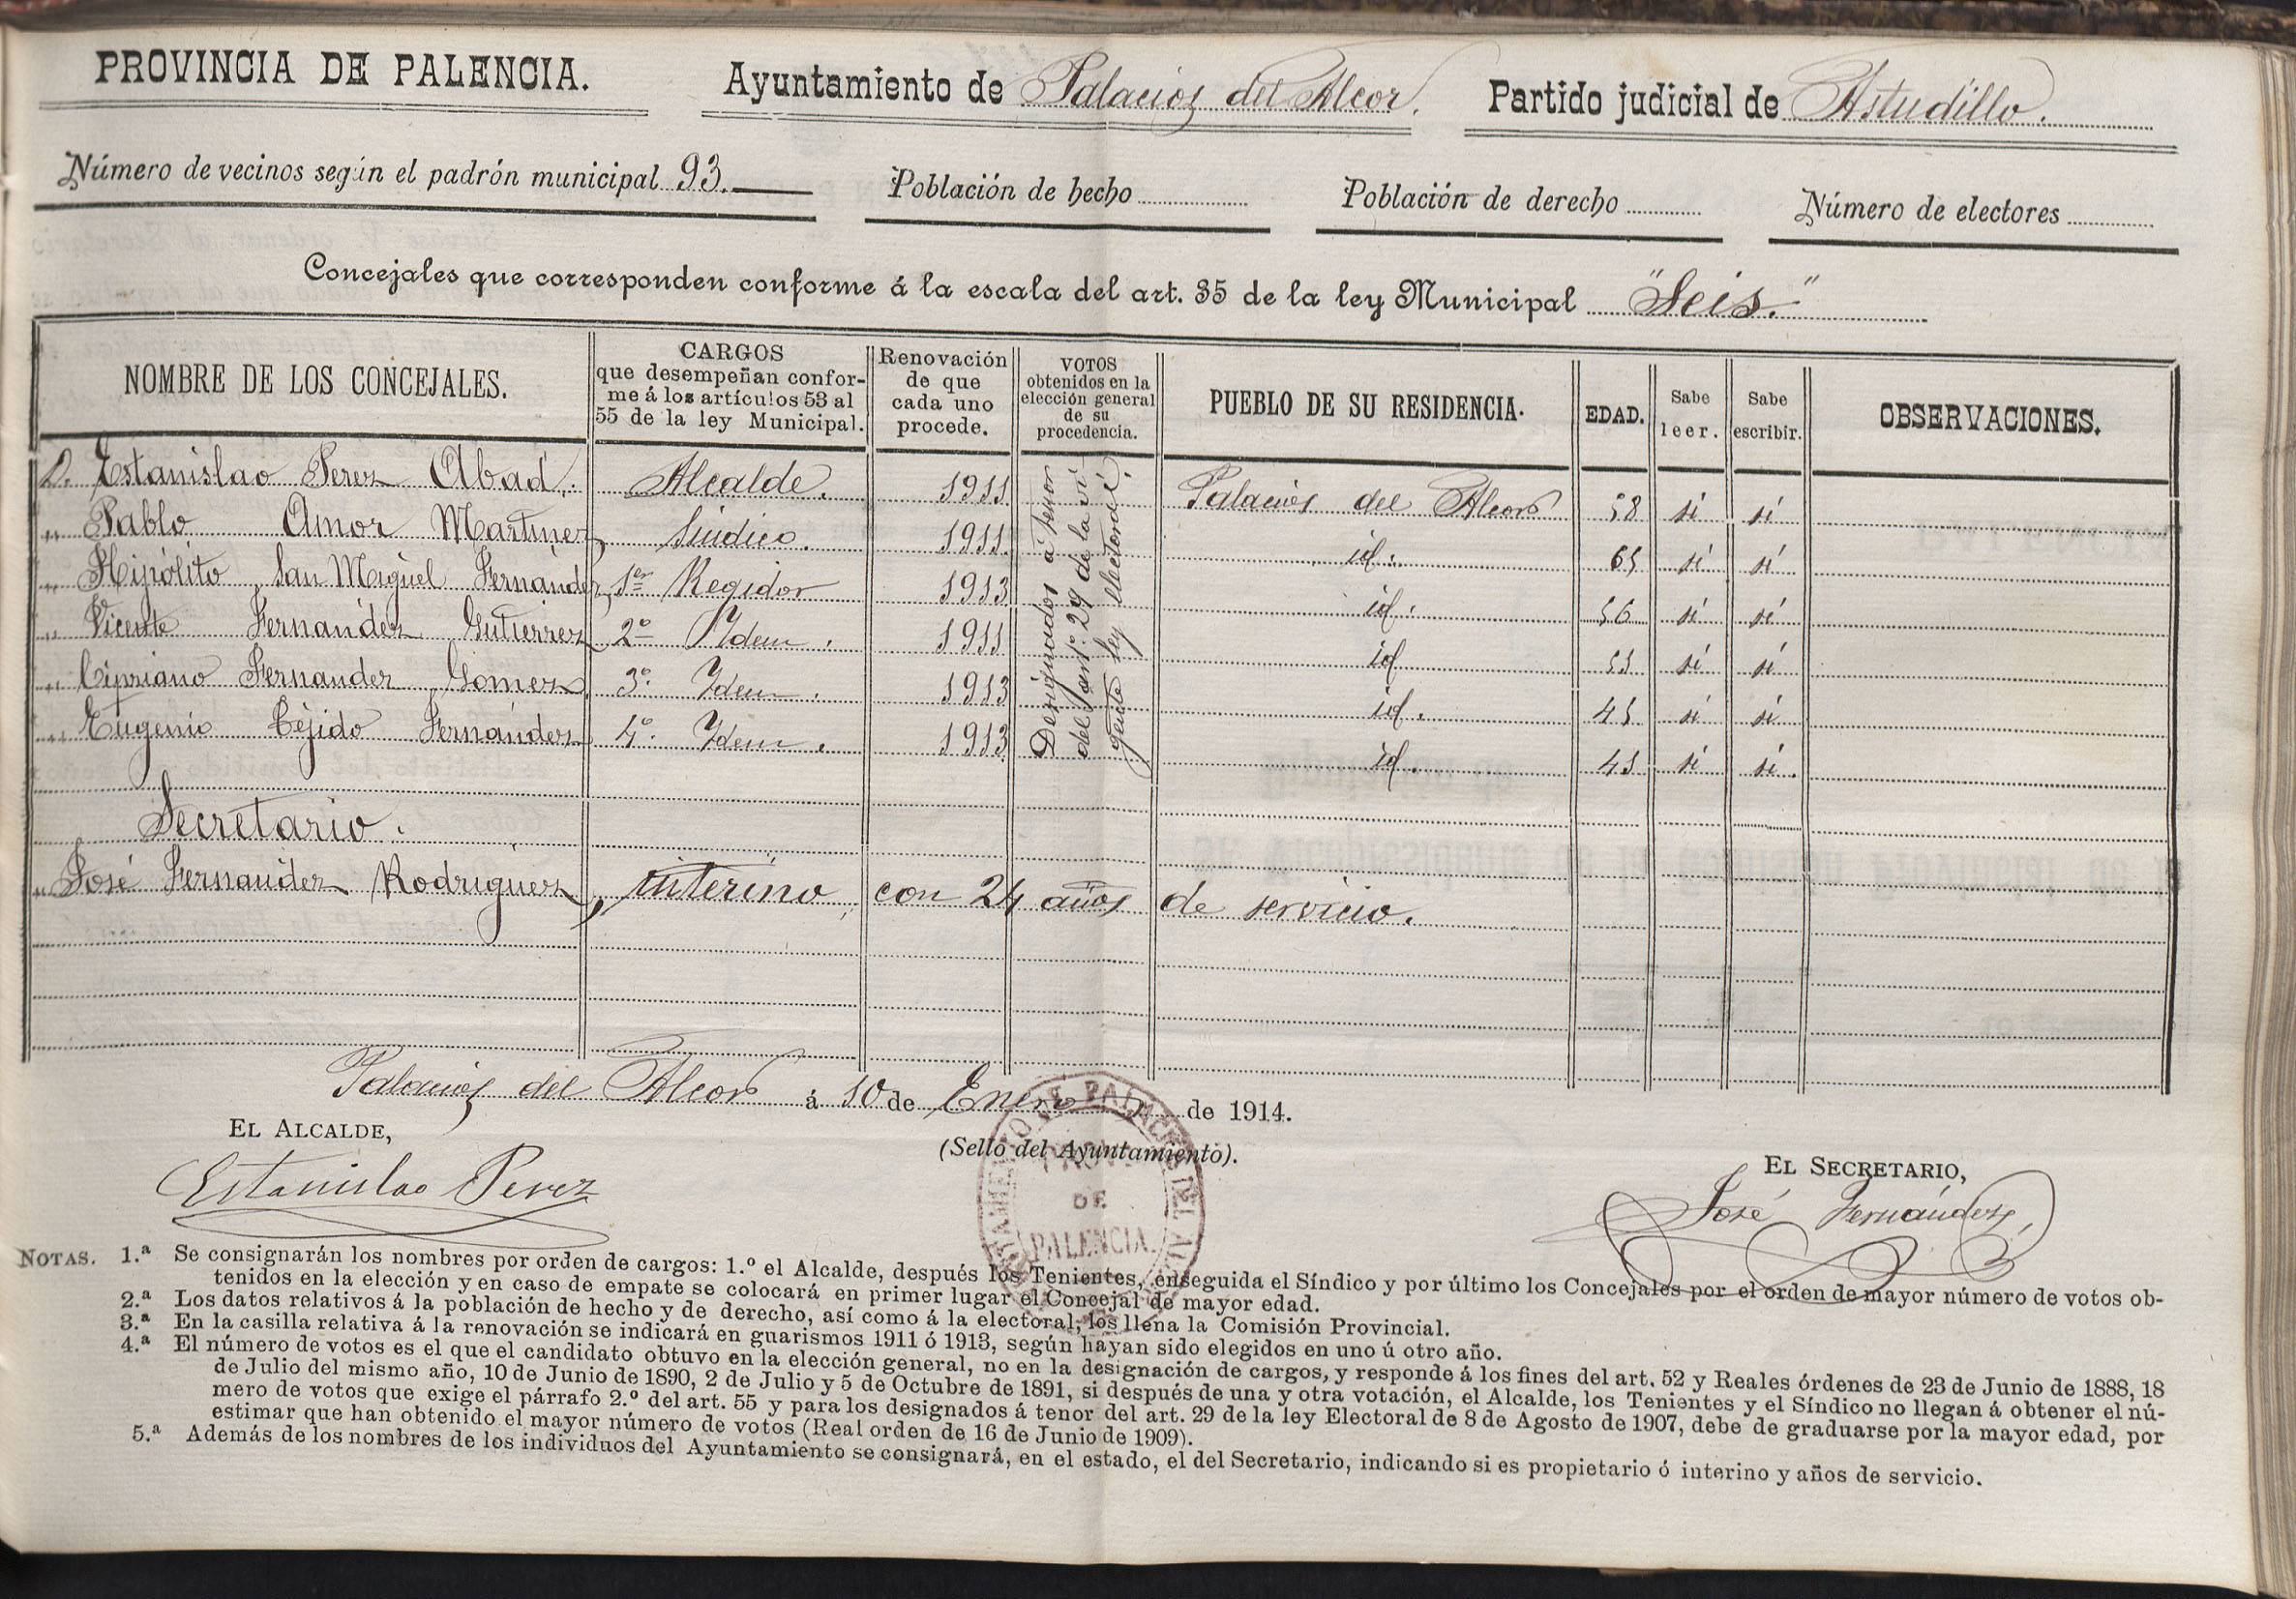 PROVINCIA DE PALENCIA. Ayuntamiento de Palacios del Alcor. Partido judicial de Astudillo.
Número de vecinos según el padrón municipal 93. Población de hecho Población de derecho Número de electores
Concejales que corresponden conforme á la escala del art. 35 de la ley Municipal "Seis."
NOMBRE DE LOS CONCEJALES.
CARGOS
que desempeñan confor-
me á los artículos 53 al
55 de la ley Municipal.
Renovación
de que
cada uno
procede.
VOTOS
obtenidos en la
elección general
de su
procedencia.
PUEBLO DE SU RESIDENCIA.
EDAD.
Sabe
leer.
Sabe
escribir.
OBSERVACIONES.
D. Estanislao Perez Abad. Alcalde. 1911 Palacios del Alcor 58 sí sí
" Pablo Amor Martinez Síndico. 1911. id. 65 sí sí
" Hipólito San Miguel Fernández 1er Regidor 1913 id. 56 sí sí
" Vicente Fernández Gutiérrez 2º Idem. 1911 id 53 sí sí
" Cipriano Fernandez Gomez 3º Idem. 1913 id. 45 sí sí
" Eugenio Tejido Fernández 4º Idem. 1913 id. 45 sí sí.
Designados á tenor
del art.º 29 de la vi
gente ley electoral.
Secretario.
" José Fernández Rodríguez, interino, con 24 años de servicio.
Palacios del Alcor á 10 de Enero de 1914.
EL ALCALDE,
(Sello del Ayuntamiento).
EL SECRETARIO,
Estanislao Perez
José Fernández
PROV.
DE
PALENCIA.
NOTAS. 1.ª Se consignarán los nombres por orden de cargos: 1.º el Alcalde, después los Tenientes, enseguida el Síndico y por último los Concejales por el orden de mayor número de votos ob-
tenidos en la elección y en caso de empate se colocará en primer lugar el Concejal de mayor edad.
2.ª Los datos relativos á la población de hecho y de derecho, así como á la electoral, los llena la Comisión Provincial.
3.ª En la casilla relativa á la renovación se indicará en guarismos 1911 ó 1913, según hayan sido elegidos en uno ú otro año.
4.ª El número de votos es el que el candidato obtuvo en la elección general, no en la designación de cargos, y responde á los fines del art. 52 y Reales órdenes de 23 de Junio de 1888, 18
de Julio del mismo año, 10 de Junio de 1890, 2 de Julio y 5 de Octubre de 1891, si después de una y otra votación, el Alcalde, los Tenientes y el Síndico no llegan á obtener el nú-
mero de votos que exige el párrafo 2.º del art. 55 y para los designados á tenor del art. 29 de la ley Electoral de 8 de Agosto de 1907, debe de graduarse por la mayor edad, por
estimar que han obtenido el mayor número de votos (Real orden de 16 de Junio de 1909).
5.ª Además de los nombres de los individuos del Ayuntamiento se consignará, en el estado, el del Secretario, indicando si es propietario ó interino y años de servicio.